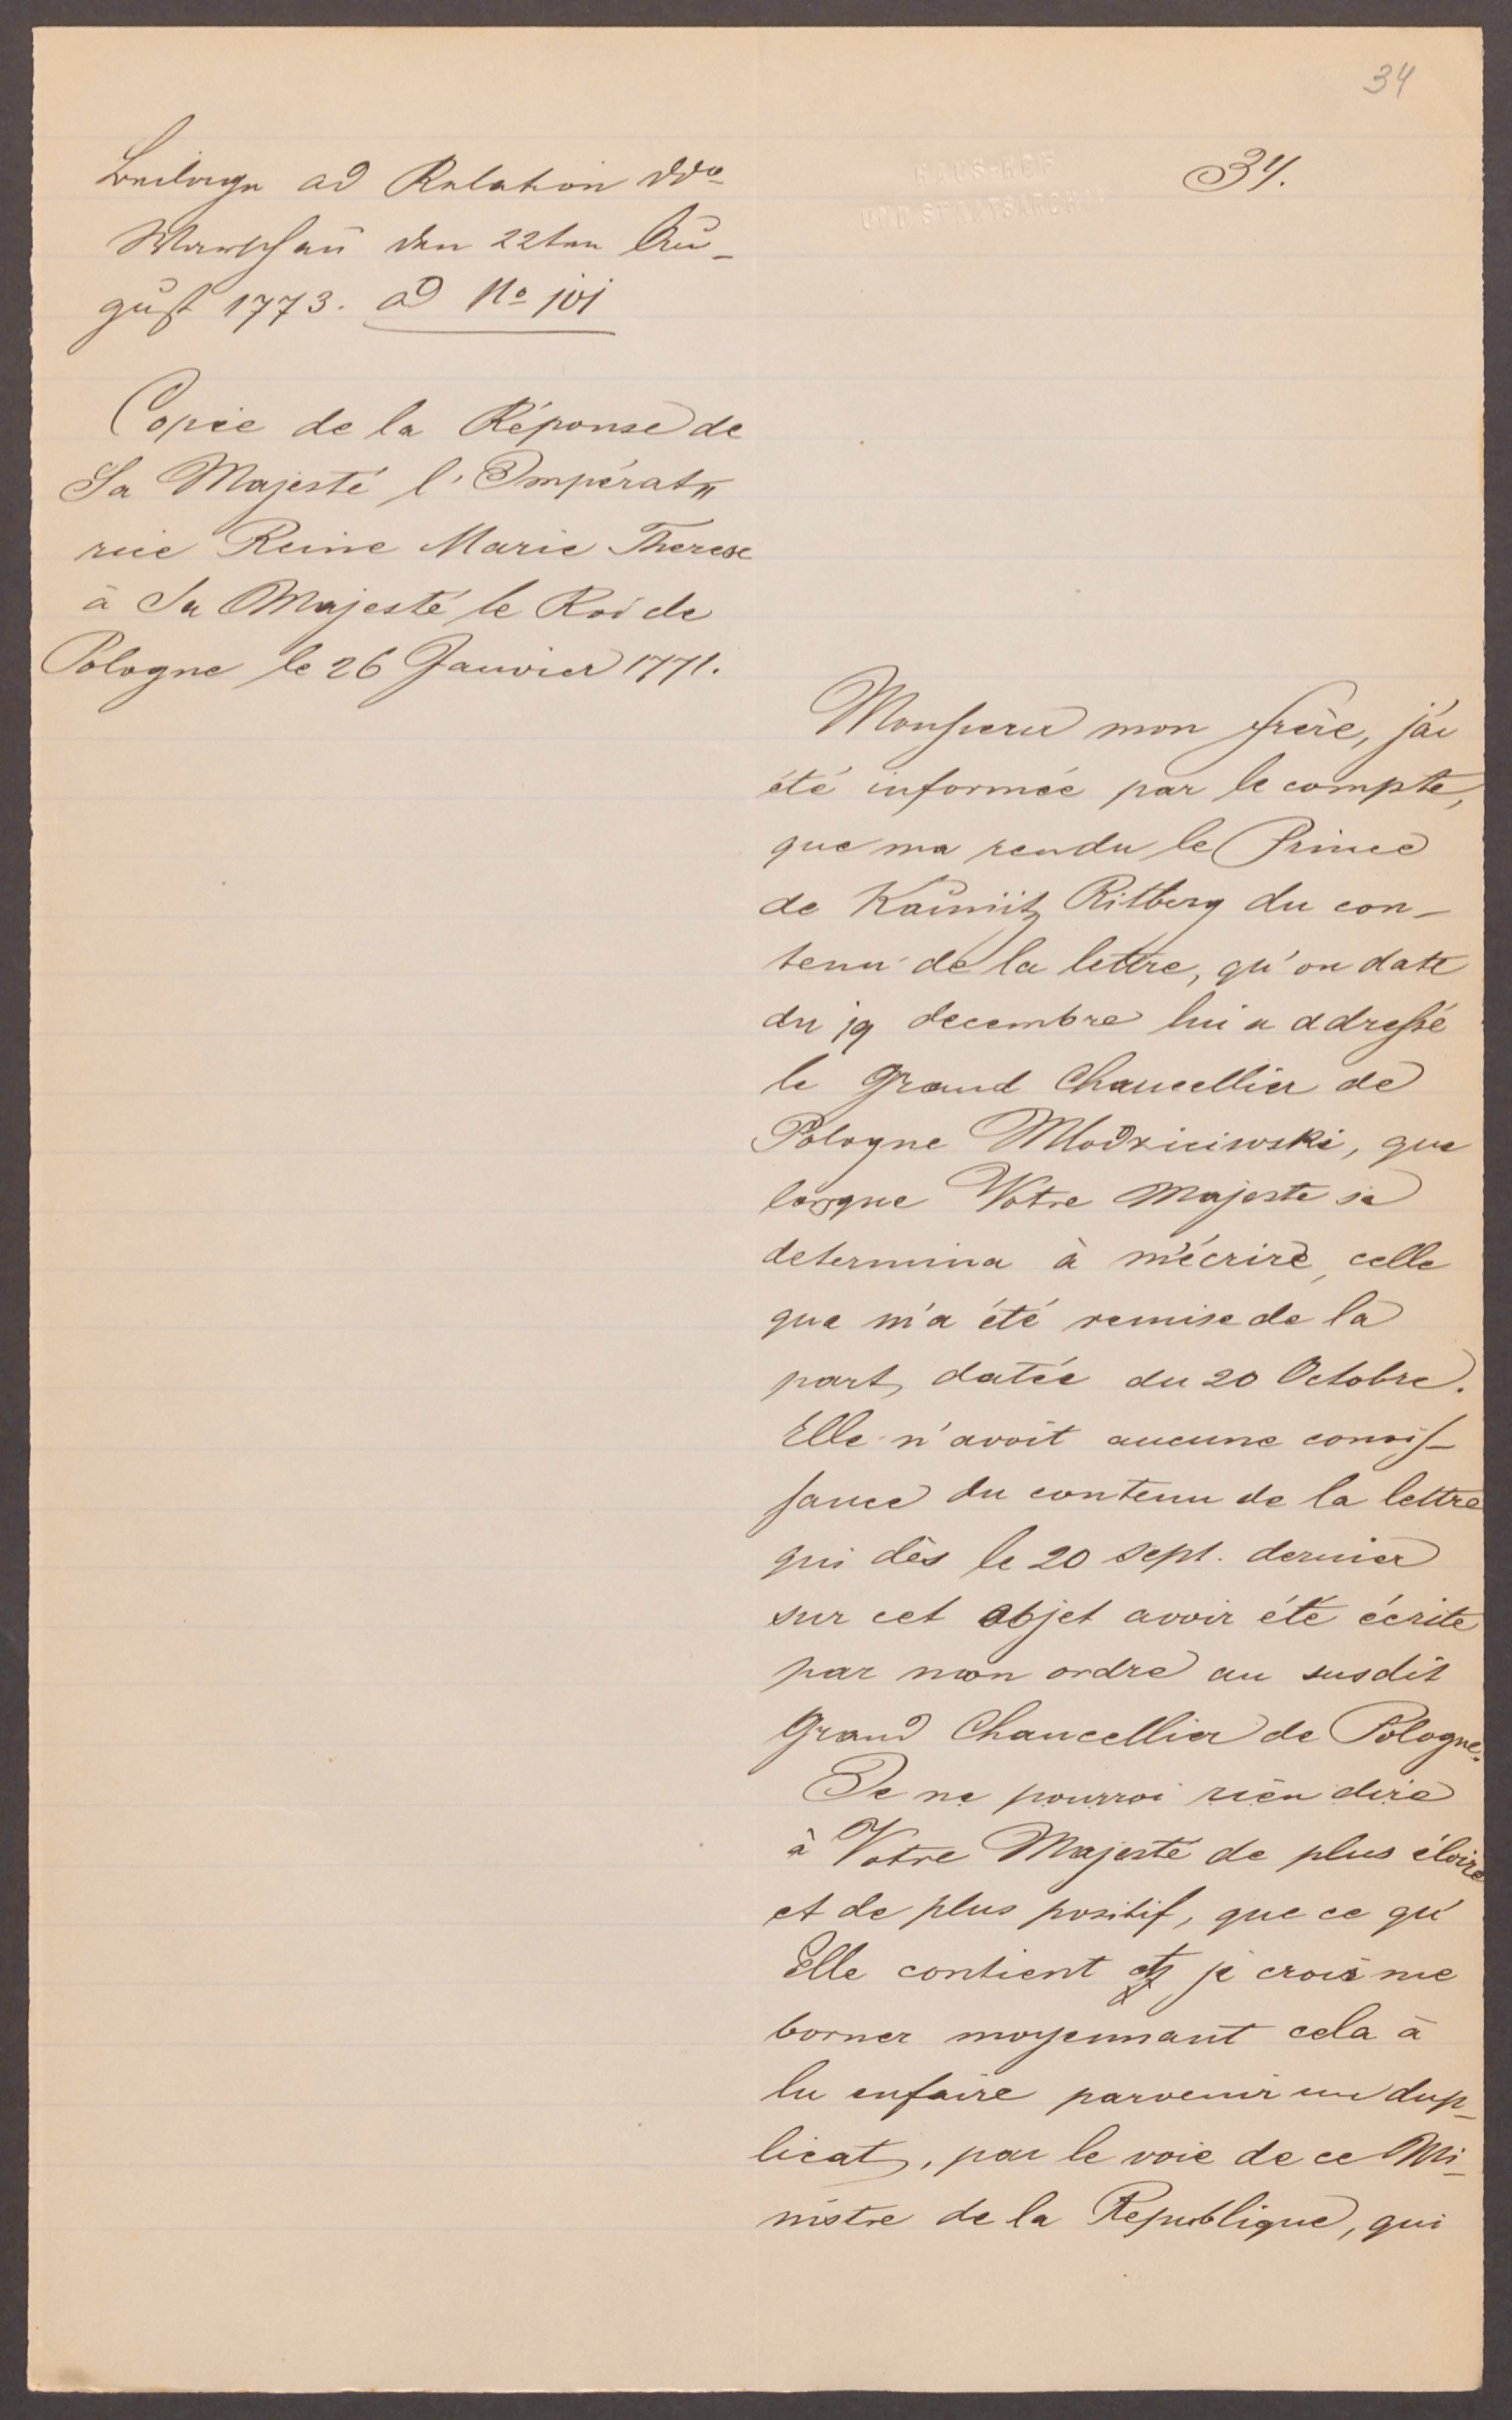 34
34.
HAUS-HOF
UND STAATSARCHIV
Beilage ad Relation ddo
Warschau den 22ten Au-
gust 1773. ad No 101
Copie de la Réponse de
Sa Majesté l'Impérat=
rice Reine Marie Therese
à Sa Majesté le Roi de
Pologne le 26 Janvier 1771.
Monsieur mon frère, j'ai
été informée par le compte,
que ma rendu le Prince
de Kaunitz Ritberg du con-
tenu de la lettre, qu'on date
du 19 decembre lui a addressé
le Grand Chancellier de
Pologne Mlodzieiwski, que
lorsque Votre Majeste se
determina à m'écrire, celle
que m'a été remise de la
part, datée du 20 Octobre.
Elle n'avoit aucune conois-
sance du contenu de la lettre
qui dès le 20 sept. dernier
sur cet objet avoir été écrite
par mon ordre au susdit
Grand Chancellier de Pologne.
Je ne pourroi rien dire
à Votre Majesté de plus
et de plus positif, que ce qu'
Elle contient et je crois me
borner moyennant cela à
lu enfaire parvenir un dup-
licat, par le voie de ce Mi-
nistre de la Republique, qui